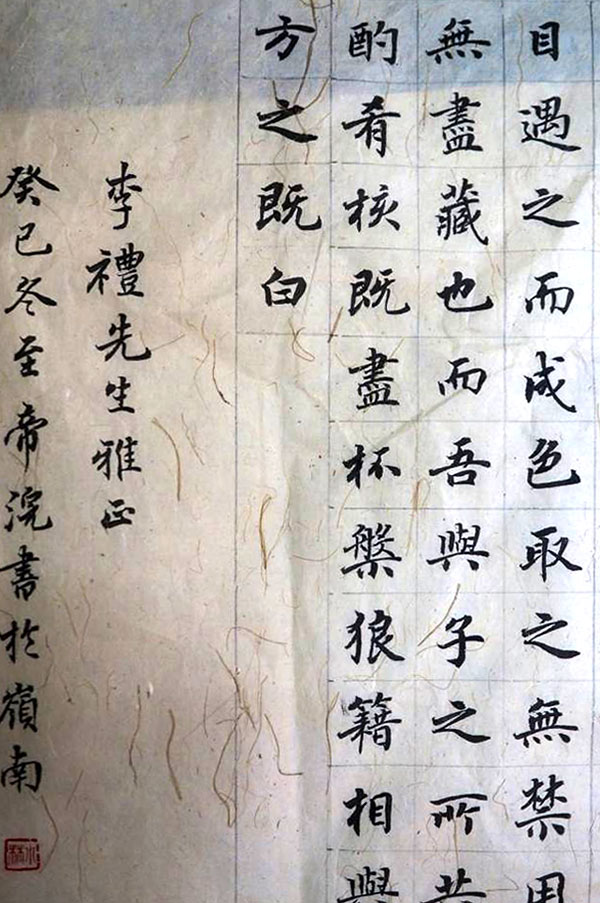 目遇之而成色取之無禁用
無盡藏也而吾與子之所共
酌肴核既盡杯槃狼籍相與
方之既白
李禮先生雅正
癸巳冬至帝浣書於嶺南